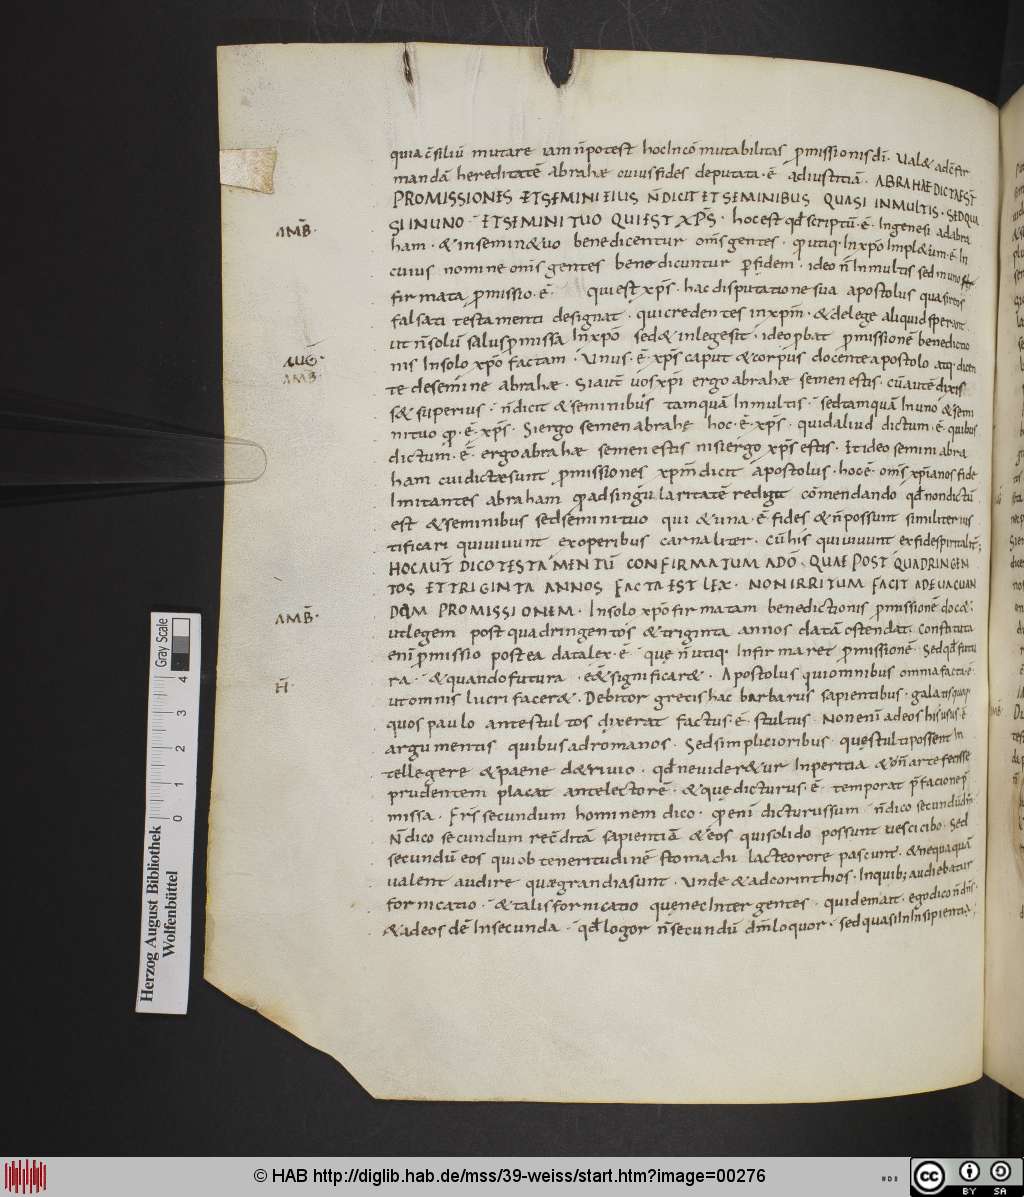 quia c̄siliū mutare iam n̄ potest hoc incōmutabilitas p̱missionis dī. Ual& ad c̄fir
mandā hereditatē abrahæ cuius fides deputata·ē· ad iustitiā. ABRAHAE DICTAE ST̄
PROMISSIONES ET SEMINI EIUS N̄ DICIT ET SEMINIBUS QUASI IN MULTIS. SED QUA
AMB̄. SI IN UNO. ET SEMINI TUO QUI EST XP̄S. hoc est qđ scriptū·ē· In genesi ad abra
ham. & in semine tuo benedicentur om̄s gentes. in xp̄o impl&um·ē· In
cuius nomine om̄s gentes benedicuntur p̱ fidem. ideo n̄ In multis sed in uno
firmata p̱missio·ē· qui est xp̄s. hac disputatione sua apostolus quasi reos
falsati testamenti designat. qui credentes in xp̄m. & de lege aliquid sperant
ut n̄ solū salus p̱missa In xp̄o sed & in lege sit. ideo p̱bat p̱missionē benedictio
AUḠ. nis In solo xp̄o factam. Unus·ē· xp̄s caput & corpus docente apostolo atq· dicen
AMB̄. te de semine abrahæ. Si aut̄ uos xp̄i ergo abrahæ semen estis. cū autē dixis
s& superius. n̄ dicit & seminibus tamquā In multis. sed tamquā In uno & semi
ni tuo ·ē· xp̄s. Si ergo semen abrahę hoc·ē· xp̄s. quid aliud dictum·ē· quibus
dictum·ē· ergo abrahæ semen estis nisi ergo xp̄s estis. Et ideo semini abra
ham cui dictæ sunt p̱missiones xp̄m dicit apostolus. hoc·ē· om̄s xp̄ianos fide
Imitantes abraham ad singularitatē redigit cōmendando qđ non dictū
est & seminibus sed semini tuo qui & una·ē· fides & n̄ possunt similiter ius
tificari qui uiuunt ex operibus carnaliter. cū his qui uiuunt ex fide spiritalit̄;
HOC AUT̄ DICO TESTAMENTŪ CONFIRMATUM A DŌ. QUAE POST QUADRINGEN
TOS ET TRIGINTA ANNOS FACTA EST LEX. NON IRRITUM FACIT AD EUACUAN
AMB̄. DAM PROMISSIONEM. In solo xp̄o firmatam benedictionis p̱missionē doc&.
ut legem post quadringentos & triginta annos datā ostendat. Constituta
enī p̱missio postea data lex·ē· quę n̄ utiq· Infirmaret p̱missionē. Sed qđ futu
H̄. ra. & quando futura·ē& significar&. Apostolus qui omnibus omnia factus·ē·
ut omnis lucrifacer&. Debitor grecis hac barbarus sapientibus. galatis quoq·
quos paulo ante stultos dixerat factus·ē· stultus. Non enī ad eos his usus·ē·
argumentis quibus ad romanos. Sed simplicioribus. quę stulti possent In
tellegere & paene de triuio. qđ ne uider&ur Inperitia & n̄ arte fecisse
prudentem placat ante lectorē. & quę dicturus·ē· temperat p̄fatione p̄
missa. Frs̄ secundum hominem dico. enī dicturus sum. n̄ dico secundū dm̄.
N̄ dico secundum recōditā sapientiā & eos qui solido possunt uesci cibo. Sed
secundū eos qui ob teneritudinē stomachi lacteo rore pascunt̄. & nequaquā
ualent audire quæ grandia sunt. Unde & ad corinthios. Inquib; auditur
fornicatio. & talis fornicatio quę nec Inter gentes. quidem ait. ego dico n̄ dn̄s.
& ad eos dē In secunda. qđ loqor n̄ secundū dm̄ loquor. sed quasi In Insipientia.
Gray Scale
0 1 2 3 4
Herzog August Bibliothek
Wolfenbüttel
© HAB http://diglib.hab.de/mss/39-weiss/start.htm?image=00276
cc BY SA